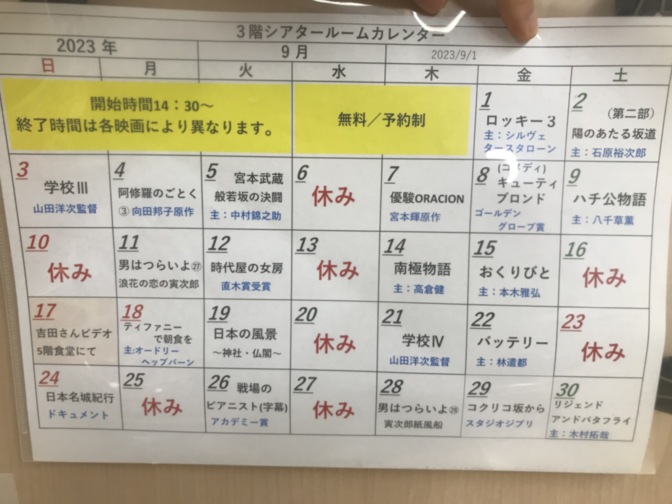 3階シアタールームカレンダー
2023年
9月
2023/9/1
日 月 火 水 木 金 土
開始時間14：30～
終了時間は各映画により異なります。
無料／予約制
1
ロッキー３
主：シルヴェ
スタースタローン
2
（第二部）
陽のあたる坂道
主：石原裕次郎
3
学校Ⅲ
山田洋次監督
4
阿修羅のごとく
③ 向田邦子原作
5
宮本武蔵
般若坂の決闘
主：中村錦之助
6
休み
7
優駿ORACION
宮本輝原作
8
(コメディ)
キューティ
ブロンド
ゴールデン
グローブ賞
9
ハチ公物語
主：八千草薫
10
休み
11
男はつらいよ㉗
浪花の恋の寅次郎
12
時代屋の女房
直木賞受賞
13
休み
14
南極物語
主：高倉健
15
おくりびと
主：本木雅弘
16
休み
17
吉田さんビデオ
5階食堂にて
18
ティファニー
で朝食を
主:オードリー
ヘップバーン
19
日本の風景
～神社・仏閣～
20
休み
21
学校Ⅳ
山田洋次監督
22
バッテリー
主：林遣都
23
休み
24
日本名城紀行
ドキュメント
25
休み
26
戦場の
ピアニスト(字幕)
アカデミー賞
27
休み
28
男はつらいよ㉘
寅次郎紙風船
29
コクリコ坂から
スタジオジブリ
30
リジェンド
アンドバタフライ
主：木村拓哉